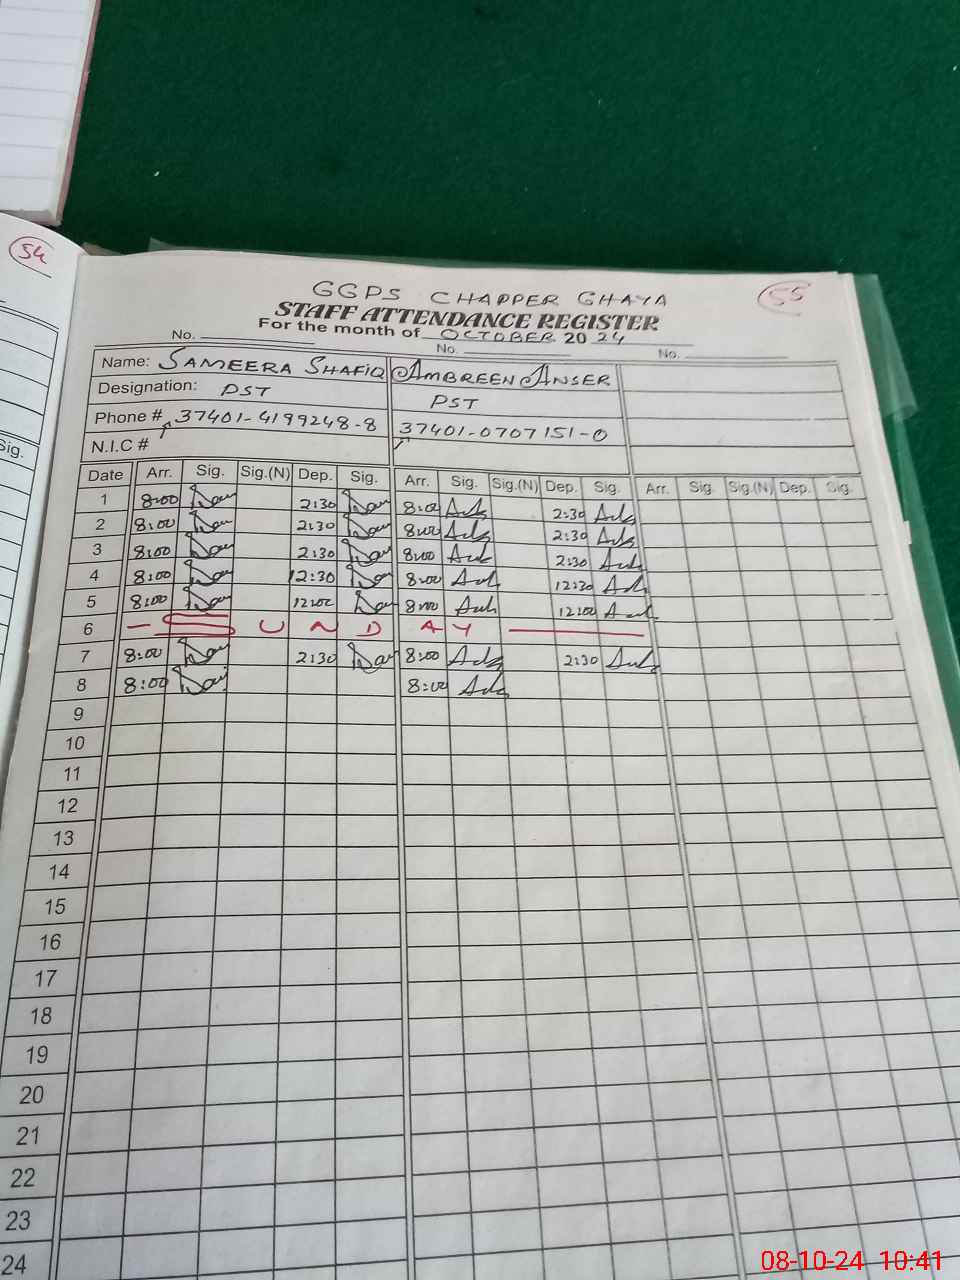 54
55
GGPS CHAPPER GHAYA
STAFF ATTENDANCE REGISTER
For the month of OCTOBER 2024
No. No. No.
Name: SAMEERA SHAFIQ AMBREEN ANSER
Designation: PST PST
Phone # 37401-4199248-8 37401-0707151-0
N.I.C #
Sig.
Date Arr. Sig. Sig.(N) Dep. Sig. Arr. Sig. Sig.(N) Dep. Sig. Arr. Sig. Sig.(N) Dep. Sig.
1 8:00 2:30 8:00 2:30
2 8:00 2:30 8:00 2:30
3 8:00 2:30 8:00 2:30
4 8:00 12:30 8:00 12:30
5 8:00 12:00 8:00 12:00
6 — S U N D A Y —
7 8:00 2:30 8:00 2:30
8 8:00 8:00
9
10
11
12
13
14
15
16
17
18
19
20
21
22
23
24
08-10-24 10:41